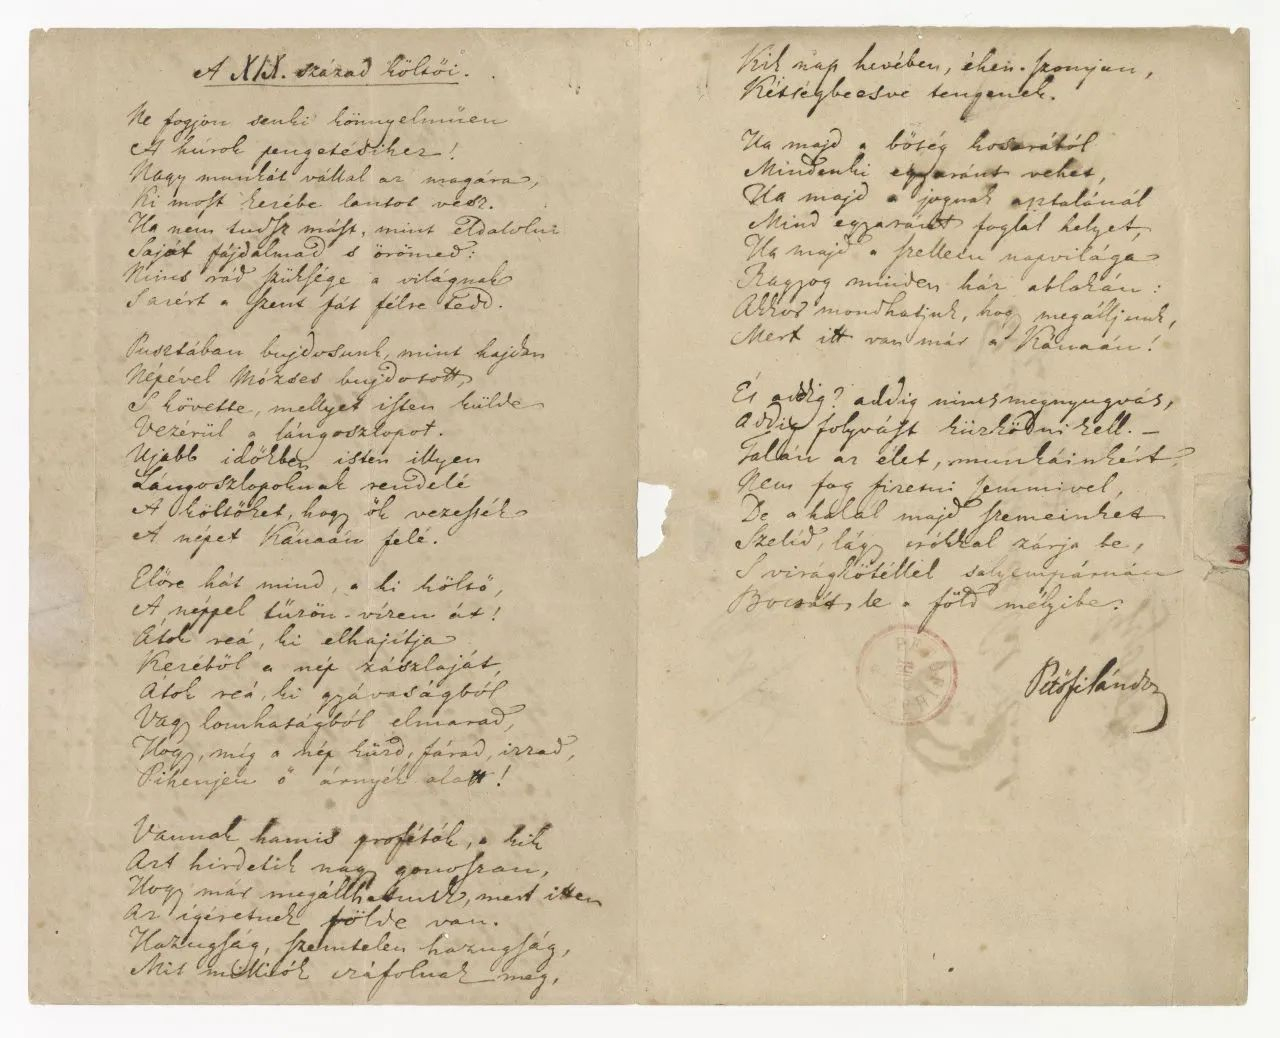 A XIX. század költői.
Ne fogjon senki könnyelműen
A húrok pengetésihez!
Nagy munkát vállal az magára,
Ki most kezébe lantot vesz.
Ha nem tudsz mást, mint eldalolni
Saját fájdalmad s örömed:
Nincs rád szüksége a világnak
S azért a szent fát félre tedd.
Pusztában bujdosunk, mint hajdan
Népével Mózses bujdosott,
S követte, mellyet isten külde
Vezérül a lángoszlopot.
Ujabb időkben isten illyen
Lángoszlopoknak rendelé
A költőket, hogy ők vezessék
A népet Kánaán felé.
Előre hát mind, a ki költő,
A néppel tűzön-vízen át!
Átok reá, ki elhajítja
Kezéből a nép zászlaját,
Átok reá, ki gyávaságból
Vagy lomhaságból elmarad,
Hogy, míg a nép küzd, fárad, izzad,
Pihenjen ő árnyék alatt!
Vannak hamis próféták, a kik
Azt hirdetik nagy gonoszan,
Hogy már megállhatunk, mert itten
Az igéretnek földe van.
Hazugság, szemtelen hazugság,
Mit milliók cáfolnak meg,
Kik nap hevében, éhen-szomjan,
Kétségbeesve tengenek.
Ha majd a bőség kosarától
Mindenki egyaránt vehet,
Ha majd a jognak asztalánál
Mind egyaránt foglal helyet,
Ha majd a szellem napvilága
Ragyog minden ház ablakán:
Akkor mondhatjuk, hogy megálljunk,
Mert itt van már a Kánaán!
És addig? addig nincs megnyugvás,
Addig folyvást küzködni kell. –
Talán az élet, munkáinkért
Nem fog fizetni semmivel,
De a halál majd szemeinket
Szelíd, lágy csókkal zárja be,
S virágkötéllel selyempárnán
Bocsát le a föld mélyibe.
Petőfi Sándor